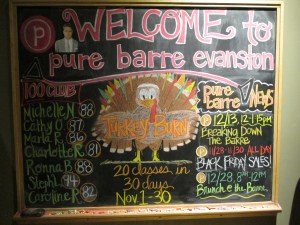 WELCOME to
P
pure barre evanston
100 CLUB
Michelle N 88
Cathy O. 87
Maria R. 86
Charlotte R. 81
Ronna B 88
Steph L 94
Caroline R 82
Turkey Burn
20 classes in
30 days
Nov. 1-30
pure barre News
P 12/13, 12-1:15pm
BREAKING DOWN
THE BARRE
P 11/28-11/30 ALL DAY
BLACK FRIDAY SALES!
P 12/28, 8am-12PM
Brunch @ the Barre